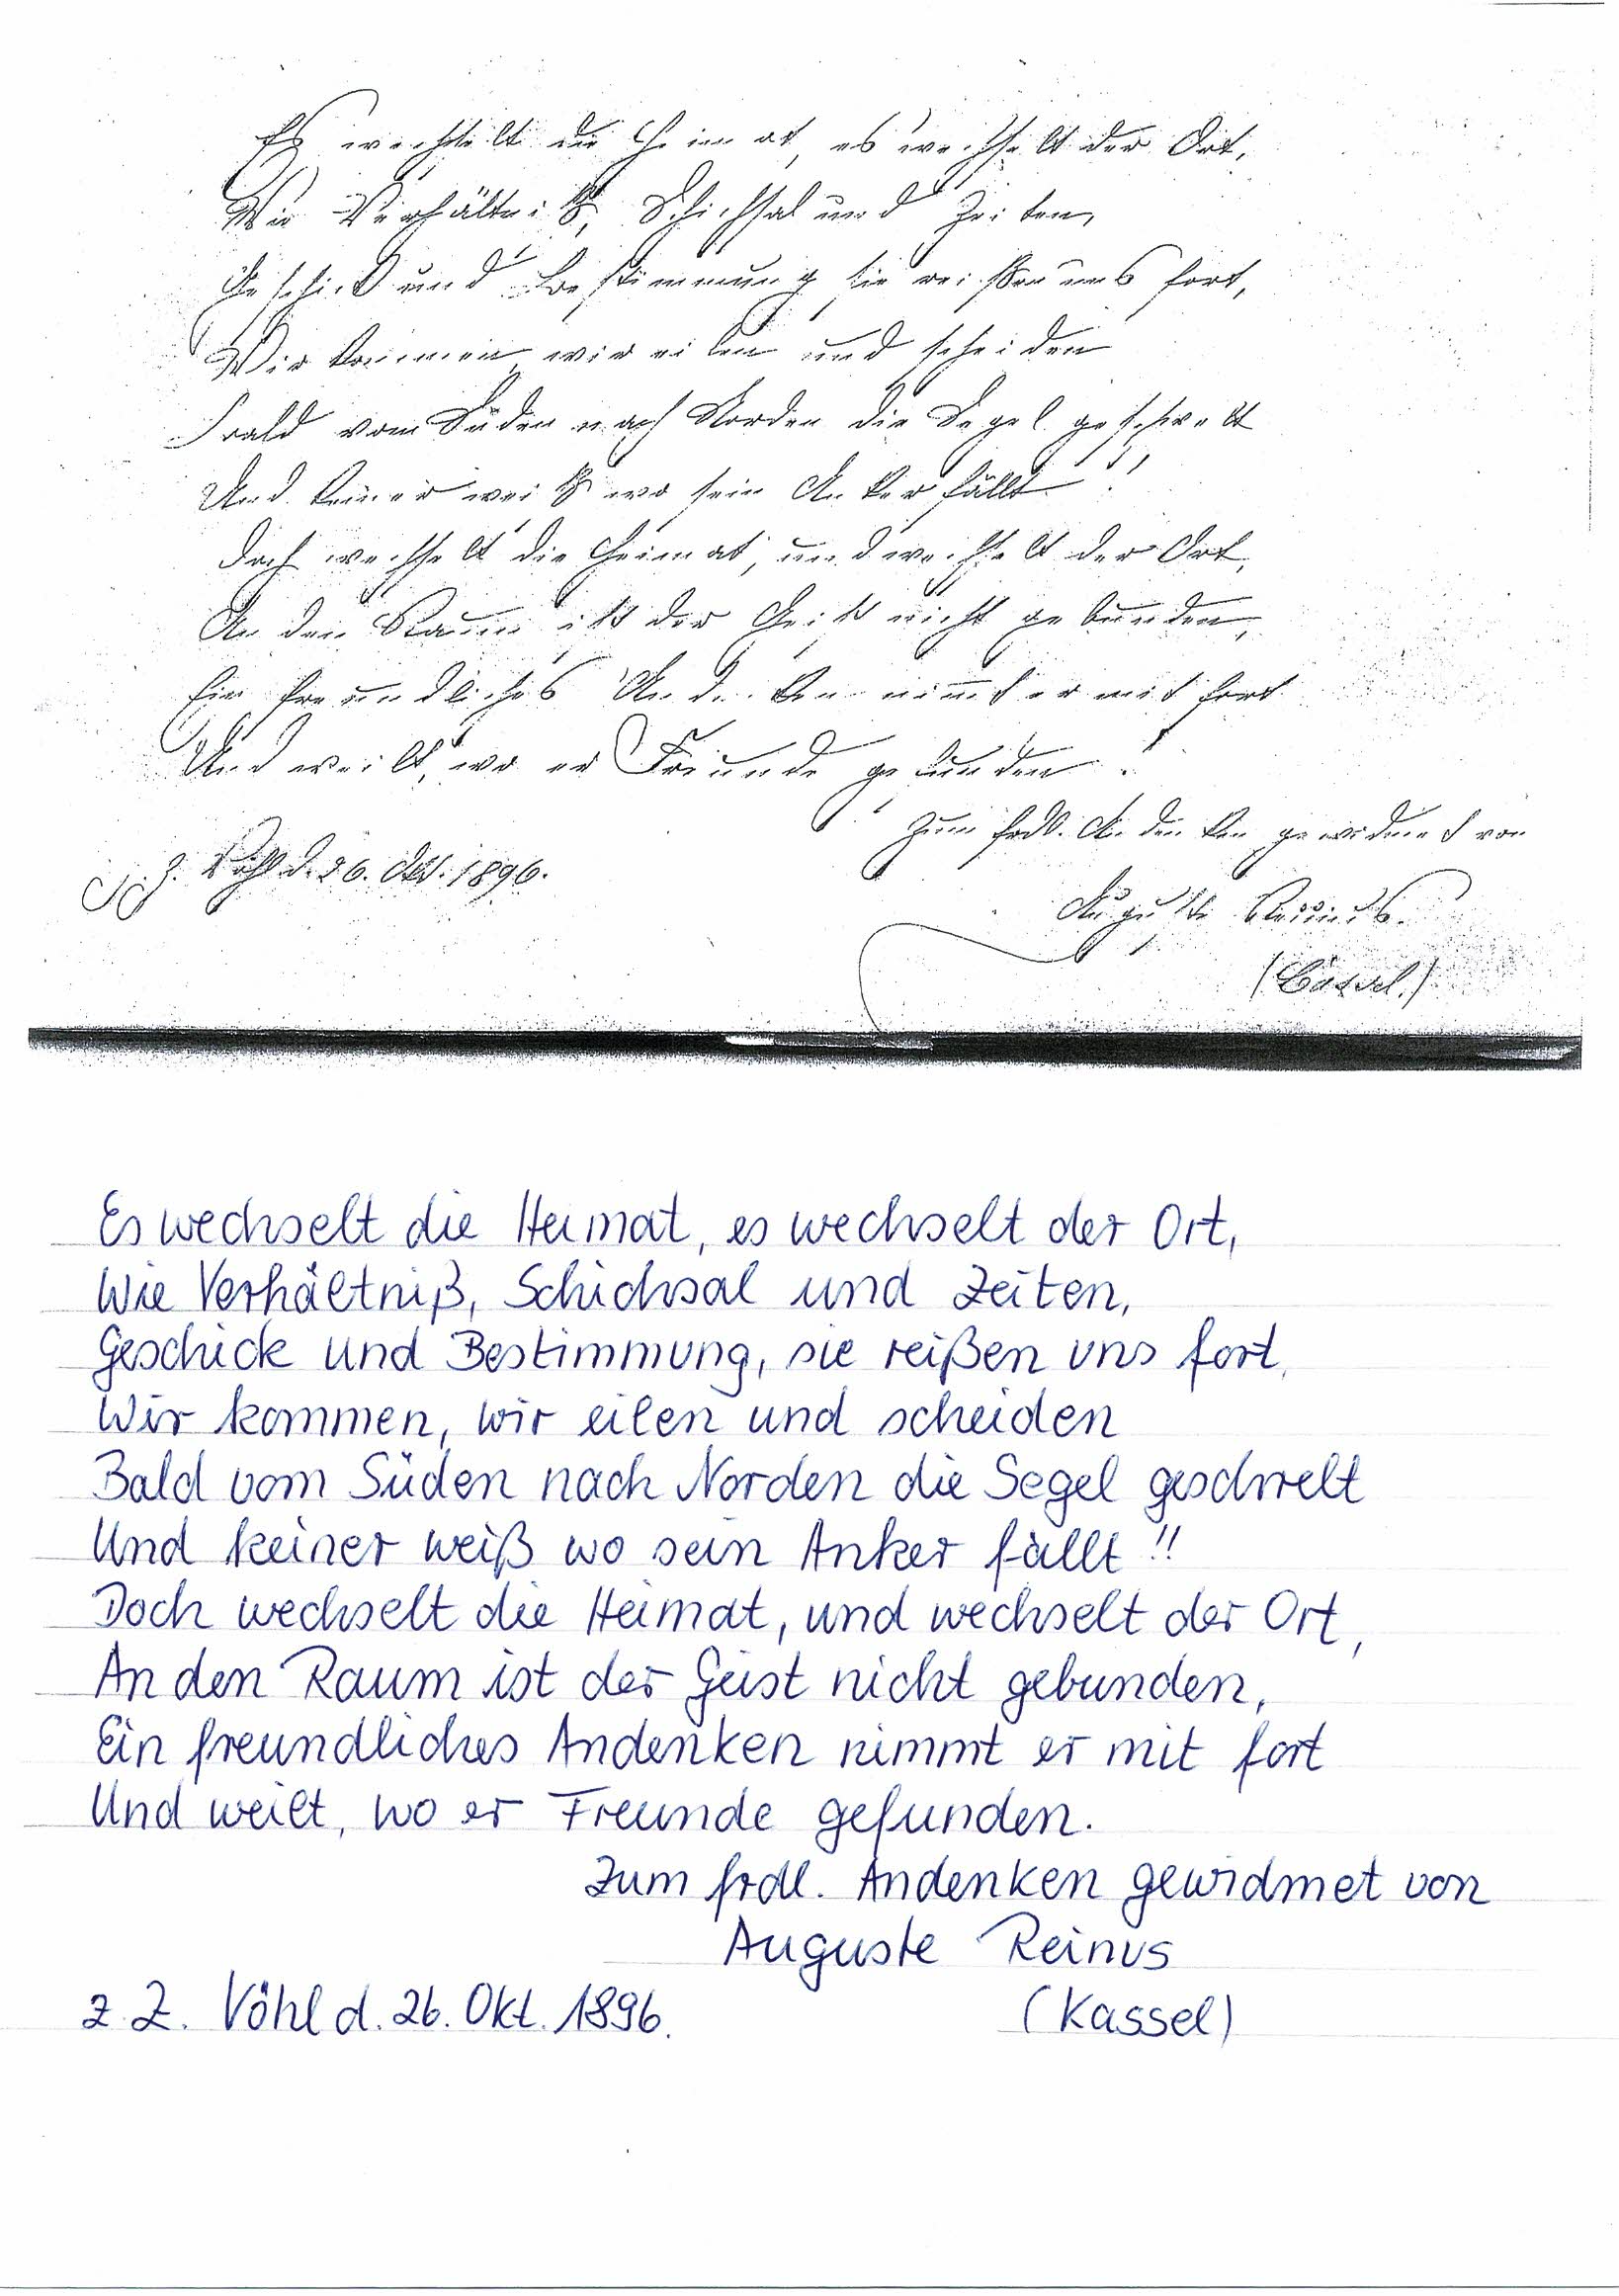 Es wechselt die Heimat, es wechselt der Ort,
Wie Verhältniß, Schicksal und Zeiten,
Geschick und Bestimmung sie reißen uns fort,
Wir kommen, wir eilen und scheiden
Bald vom Süden nach Norden die Segel geschwellt
Und keiner weiß wo sein Anker fällt!!
Doch wechselt die Heimat, und wechselt der Ort,
An den Raum ist der Geist nicht gebunden,
Ein freundliches Andenken nim̅t er mit fort
Und weilt, wo er Freunde gefunden!
Zum frdl. Andenken gewidmet von
z. Z. Vöhl d. 26. Okt. 1896.
Auguste Reinus.
(Cassel.)
Es wechselt die Heimat, es wechselt der Ort,
Wie Verhältniß, Schicksal und Zeiten,
Geschick und Bestimmung, sie reißen uns fort,
Wir kommen, wir eilen und scheiden
Bald vom Süden nach Norden die Segel geschwelt
Und keiner weiß wo sein Anker fällt!!
Doch wechselt die Heimat, und wechselt der Ort,
An den Raum ist der Geist nicht gebunden,
Ein freundliches Andenken nimmt er mit fort
Und weilt, wo er Freunde gefunden.
Zum frdl. Andenken gewidmet von
Auguste Reinus
z. Z. Vöhl d. 26. Okt. 1896. (Kassel)